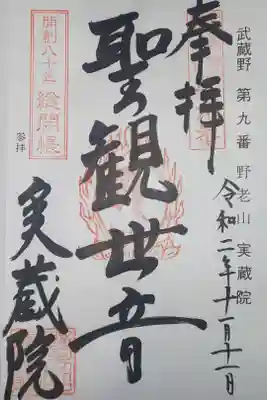 武蔵野 第九番 野老山 実蔵院
奉拝
令和二年十一月十一日
聖観世音
開創八十年
総開帳
参拝
実蔵院